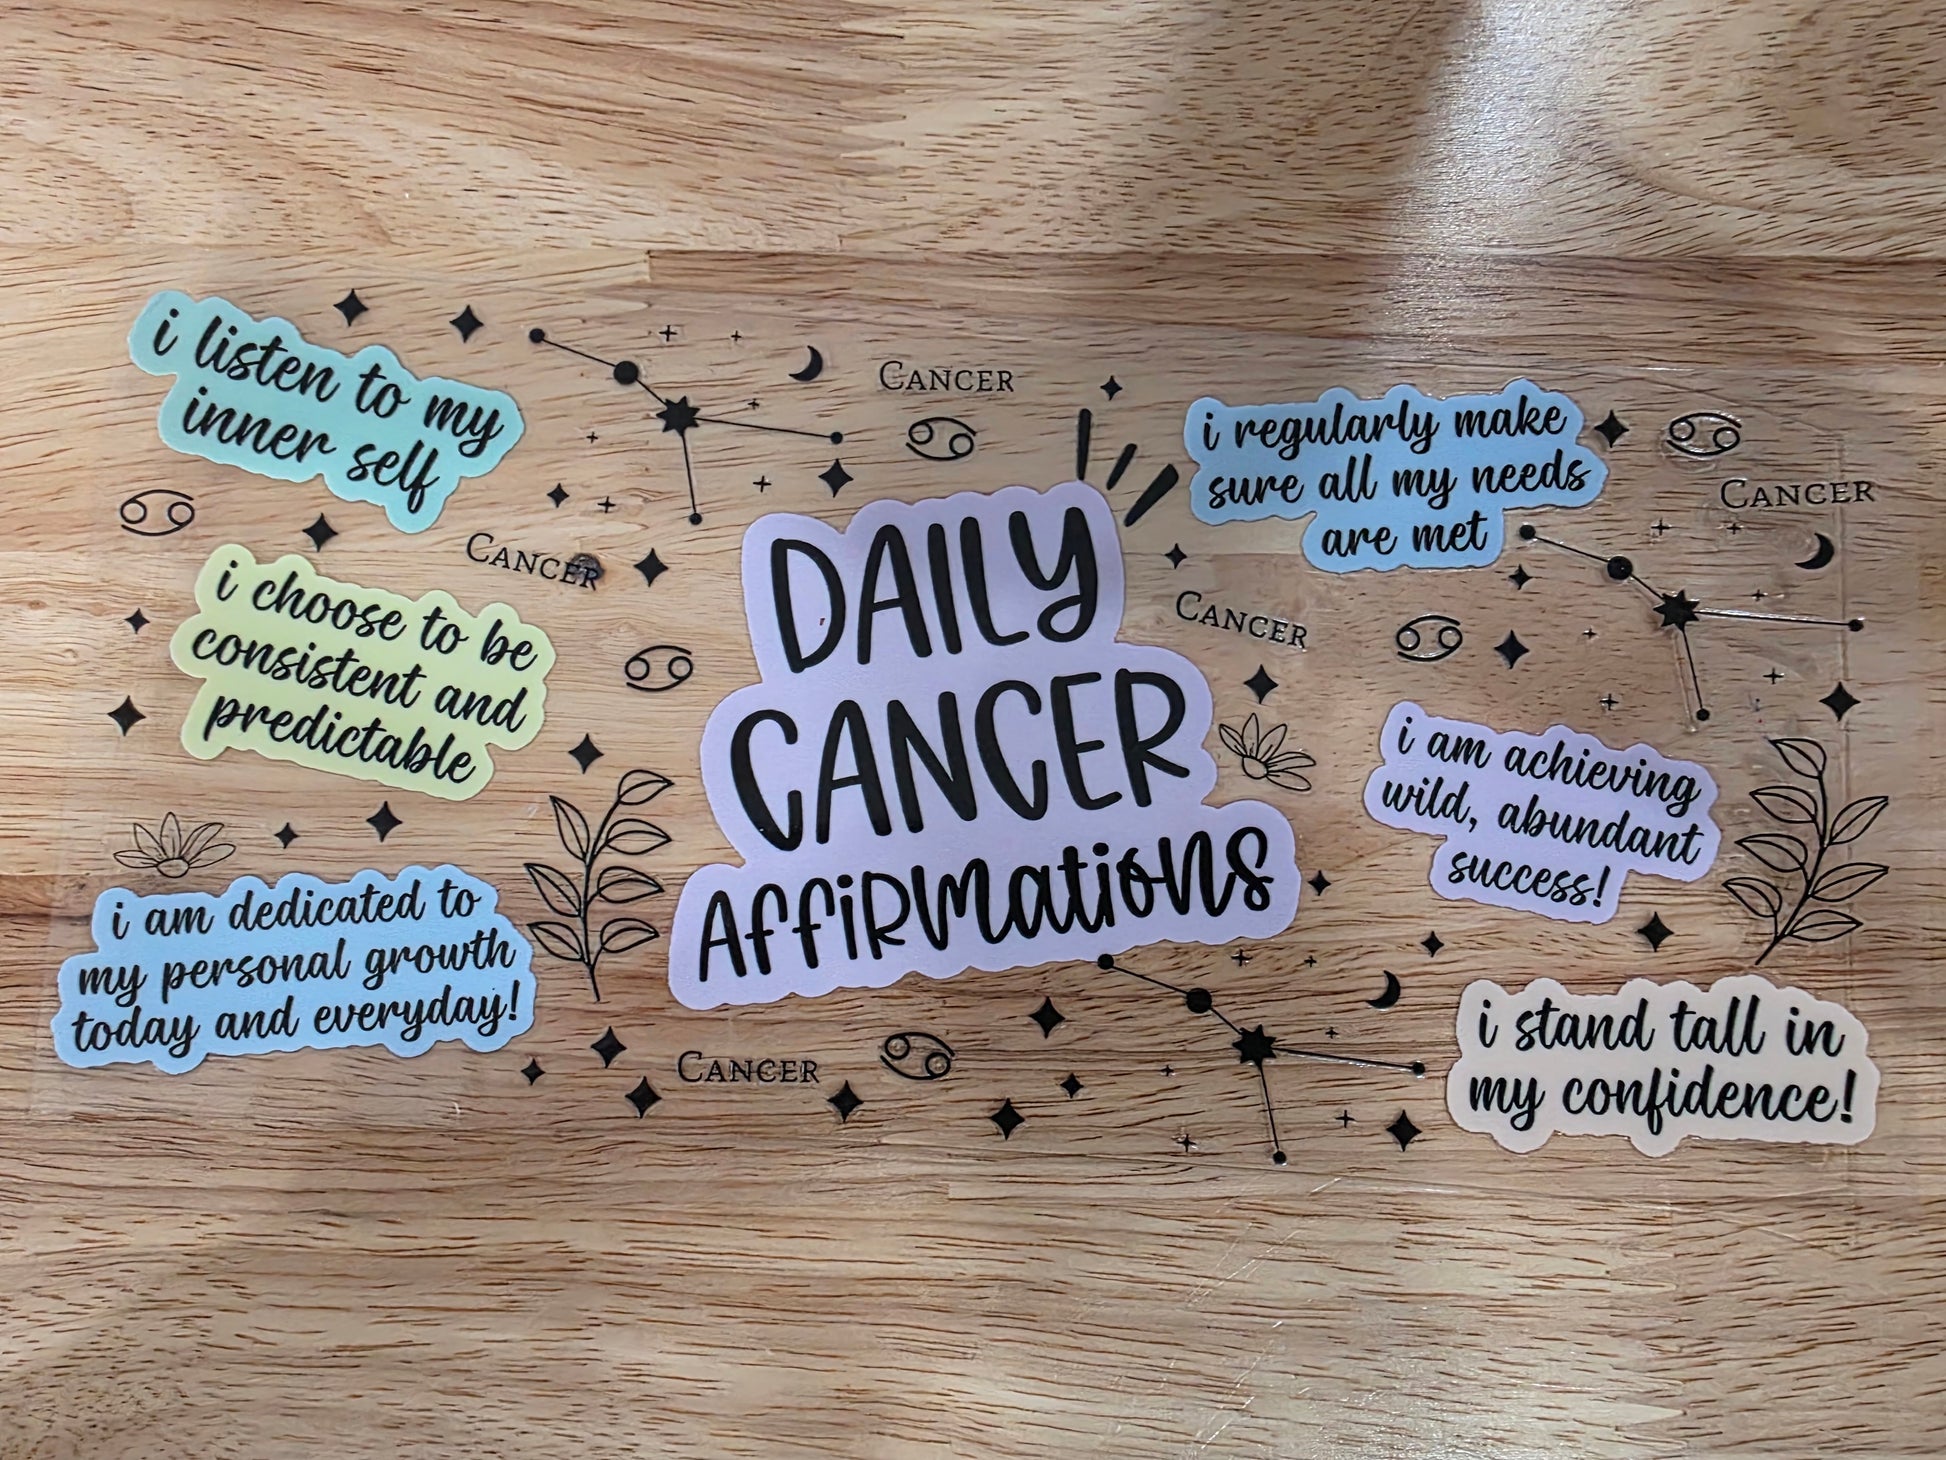 i listen to my
inner self
Cancer
i regularly make
sure all my needs
are met
Cancer
Cancer
DAILY
CANCER
AFFIRMATIONS
Cancer
i choose to be
consistent and
predictable
i am achieving
wild, abundant
success!
i am dedicated to
my personal growth
today and everyday!
Cancer
i stand tall in
my confidence!